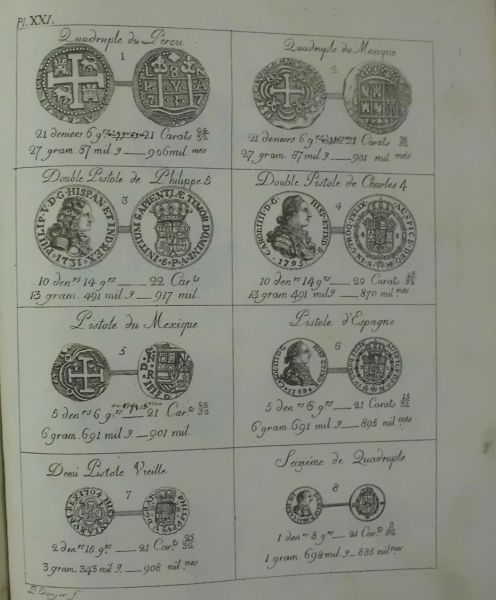 Pl. XXI.
Quadruple du Perou
1
L 8 N
P V A
7 3 7
21 deniers 6 g.rs 21 Carats
27 gram. 87 mil g — 906 mil mes
Quadruple du Mexique
2
21 deniers 6 g.rs Carats
27 gram. 87 mil g — 901 mil mes
Double Pistole de Philippe 5
3
PHILIP·V·D·G·HISPAN·ET IND·REX
·1731·
INITIUM SAPIENTIÆ TIMOR DOMINI
10 den.rs 14 g.rs — 22 Car.ts
13 gram. 491 mil g — 917 mil.
Double Pistole de Charles 4
4
CAROL·IIII·D·G· HISP·ET IND·R·
·1795·
IN·UTROQ·FELIX· AUSPICE·DEO
10 den.rs 14 g.rs — 20 Carats 28/32
13 gram 491 mil g — 870 mil.mes
Pistole du Mexique
5
5 den.rs 6 g.rs — 21 Car.ts 20/32
6 gram. 691 mil g — 901 mil
Pistole d'Espagne
6
5 den.rs 6 g.rs — 21 Carats 15/32
6 gram 691 mil g — 895 mil.mes
Demi Pistole Vieille
7
1704
PHILIPPUS V DGRAT
2 den.rs 15 g.rs — 21 Car.ts 25/32
3 gram. 343 mil g. — 908 mil.mes
Seiziéme de Quadruple
8
1 den.rs 8 g.rs — 21 Car.ts 8/32
1 gram. 698 mil g — 885 mil.mes